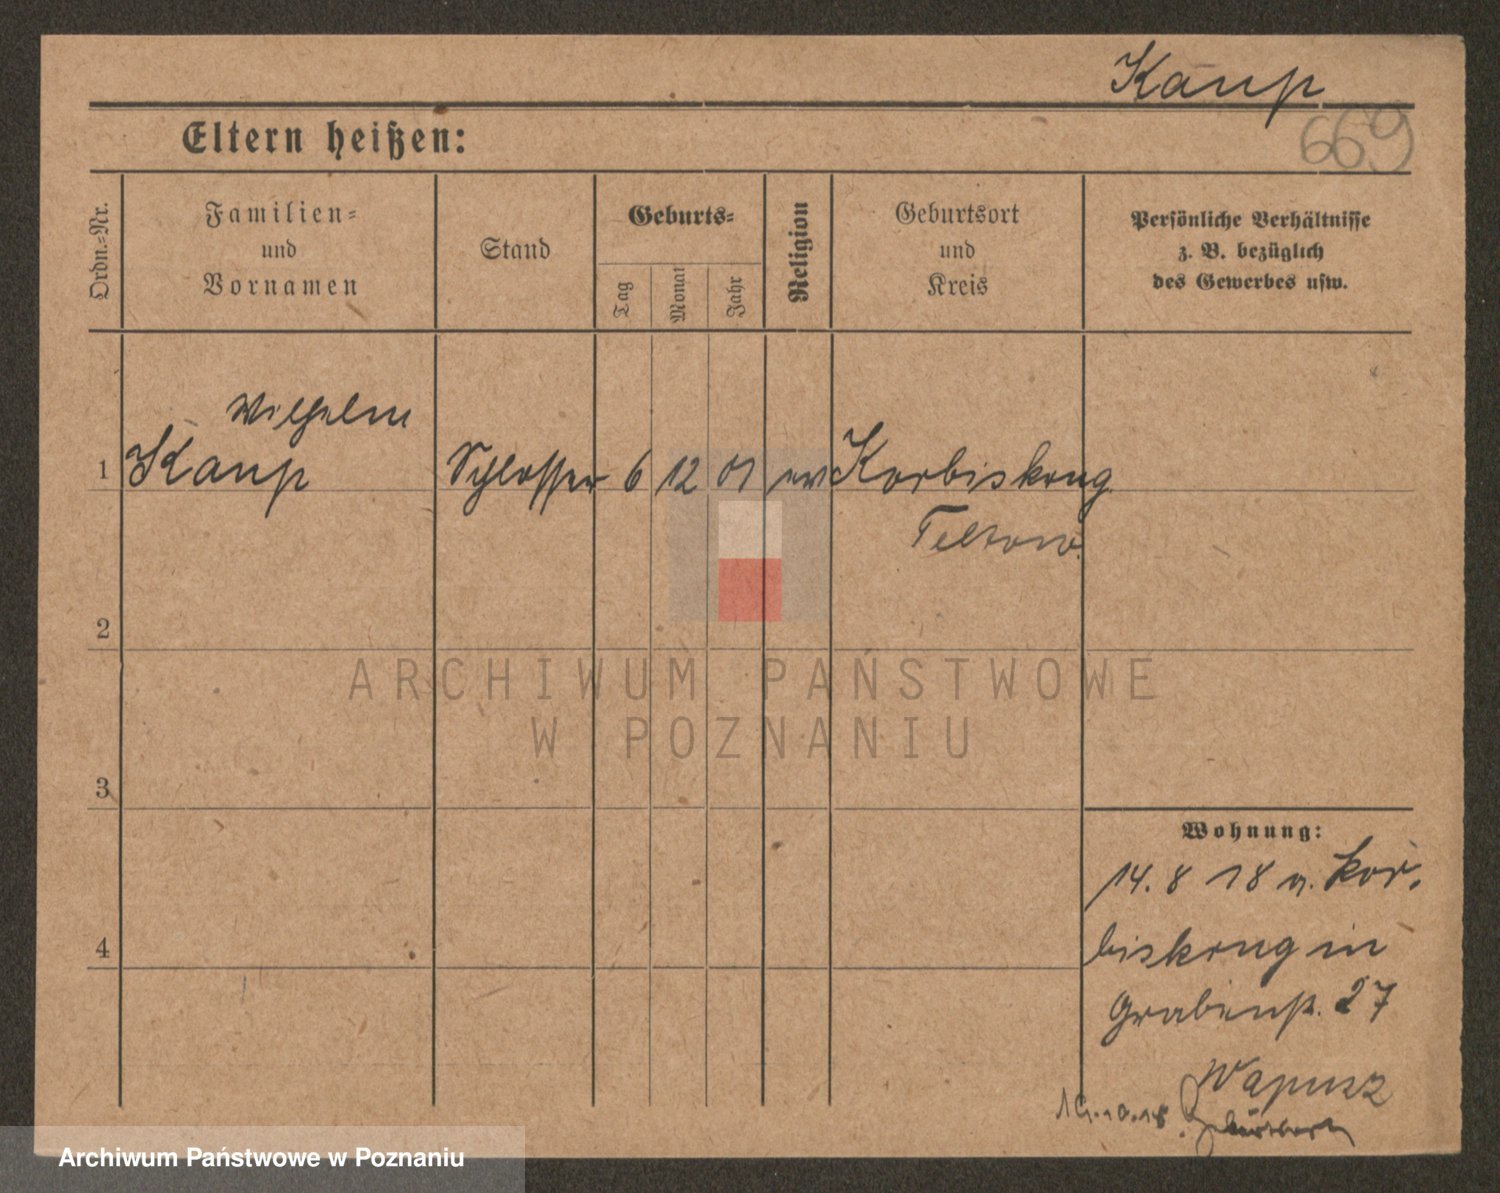 Kaup
669
Eltern heißen:
Ordn.=Nr.
Familien=
und
Vornamen
Stand
Geburts=
Tag
Monat
Jahr
Religion
Geburtsort
und
Kreis
Persönliche Verhältnisse
z. B. bezüglich
des Gewerbes usw.
Wilhelm
1 Kaup Schlosser 6 12 01 ev Korbiskrug
Teltow.
2
ARCHIWUM PAŃSTWOWE
W POZNANIU
3
Wohnung:
14. 8 18 v. Kor.
4
biskrug in
Grabenst. 27
Wapusz
19.10.18
Archiwum Państwowe w Poznaniu